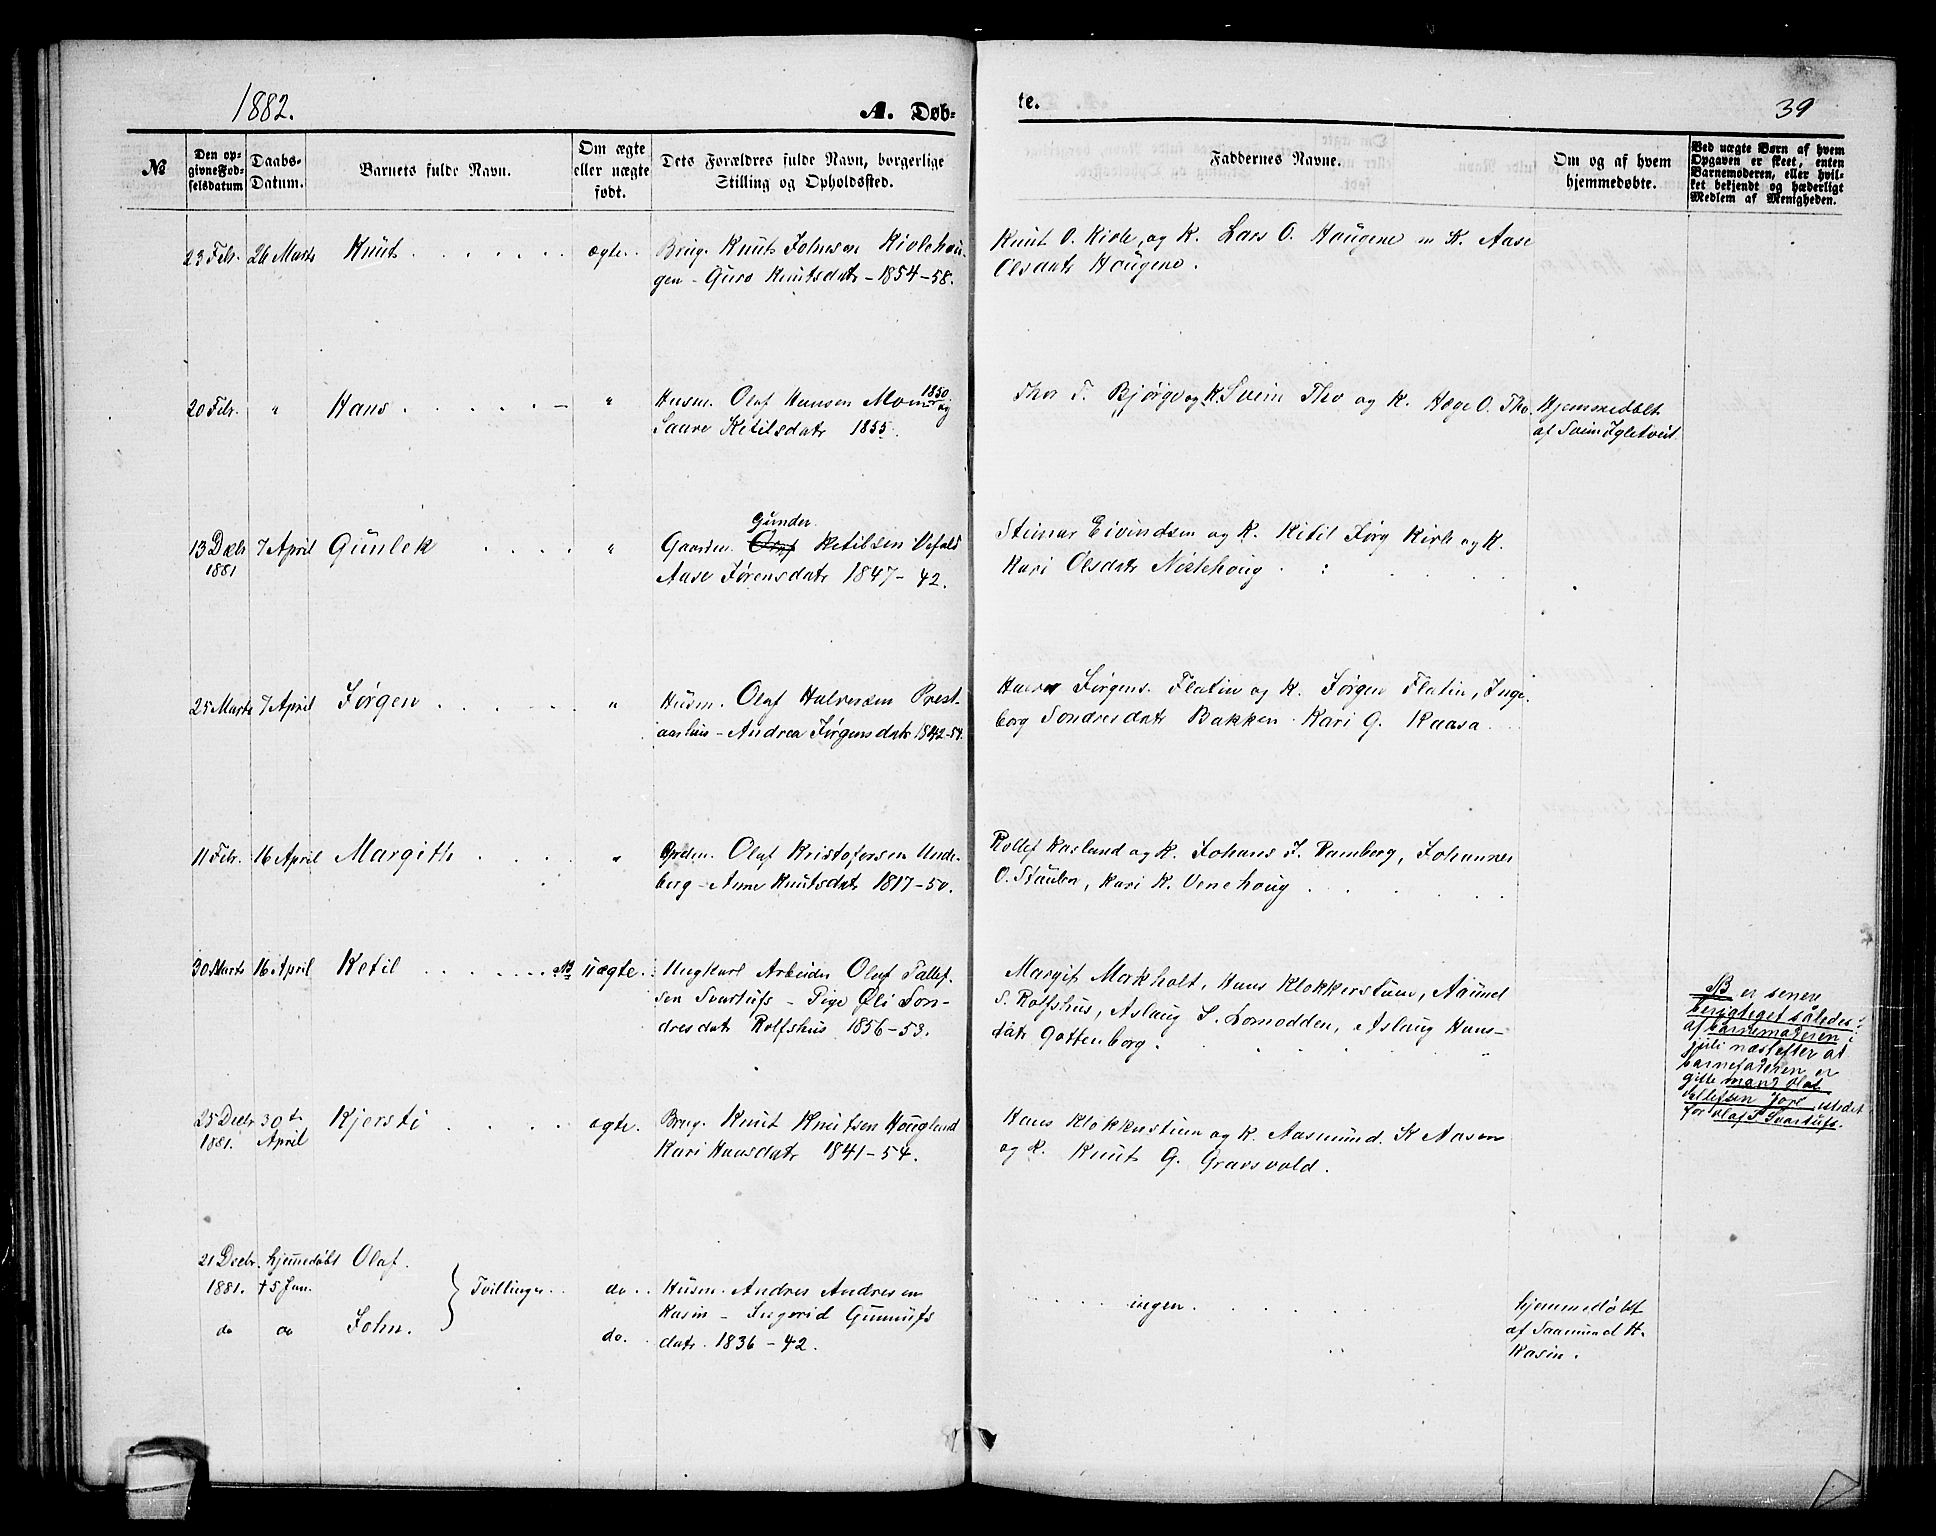 1882.
A. Døb-
te.
39
№
Den op-
givne Fød-
selsdatum
Daabs-
Datum.
Barnets fulde Navn.
Om ægte
eller uægte
født.
Dets Forældres fulde Navn, borgerlige
Stilling og Opholdssted.
Faddernes Navne.
Om og af hvem
hjemmedøbte.
Ved uægte Børn af hvem
Opgaven er skeet, enten
Barnemoderen, eller hvil-
ket bekjendt og hæderligt
Medlem af Menigheden.
23 Febr. 26 Marts Knut ægte. Brug. Knut Johnsen Kivlehou-
gen - Guro Knutsdatr - 1854-58.
Knut O. Kivle, og K. Lars O. Haugene m K. Aase
Olsdatr Haugene.
20 Febr. " Hans " Husm. Olaf Hansen Moen 1850 og
Saave Ketilsdatr 1855.
Thor T. Bjørge og K. Svein Tho og K. Hæge O. Tho.
Hjemmedøbt
af Svein Igletveit
13 Decbr 7 April Gunlek " Gaardm. Olaf Gunder Ketilsen Vefald
1881 Aase Jørensdatr 1847-42.
Steinar Eivindsen og K. Kitil Jørg Kivle og K.
Kari Olsdatr Nirlehoug
25 Marts 7 April Jørgen " Husm. Olaf Halvorsen Prest-
aarhus - Andrea Jørgensdatr 1842-54.
Jørgens. Flatin og K. Jørgen Flatin, Inge-
borg Sondresdatr Bakken. Kari G. Kaasa
11 Febr. 16 April Margith " Olaf Kristofersen Unde-
berg - Anne Knutsdatr 1817-50.
Rollef Kasland og K. Johans J. Vamberg, Johannes
O. Staulen, Kari K. Venehoug
30 Marts 16 April Ketil NB uægte. Ungkarl Arbeider Olaf Tallef-
sen Svartufs - Pige Øli Son-
dresdatr Rolfshus 1856-53.
Margit Morkholt, Hans Klokkerstuen, Aamund
S. Rolfshus, Aslaug S. Lomodden, Aslaug Hans-
datr Gottenborg.
NB er senere
berigtiget således:
af barnemoderen i
juli næstefter at
barnefaderen er
gifte mand Olaf
Tallefsen Jore istedet
for Olaf T. Svartufs.
25 Decbr 30te Kjersti ægte. Brug. Knut Knutsen Houglund
1881. April Kari Hansdatr 1841-54.
Hans Klokkerstuen og K. Aasmund K Aasen
og K. Knut G. Gravsvold.
21 Decbr. hjemmedøbt Olaf.
1881. †5 Jan. Tvillinger do Husm. Andres Andresen
Kasin - Ingerid Gunnufs
do do John. do. datr. 1836-42.
ingen
hjemmedøbt
af Saamund H.
Kasin.